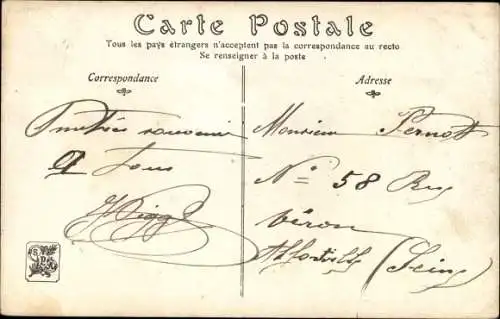 Carte Postale
Tous les pays étrangers n'acceptent pas la correspondance au recto
Se renseigner à la poste
Correspondance
Adresse
souvenir
a Tous
Monsieur Pernott
N° = 58 Rue
Véron
Alfortville (Seine)